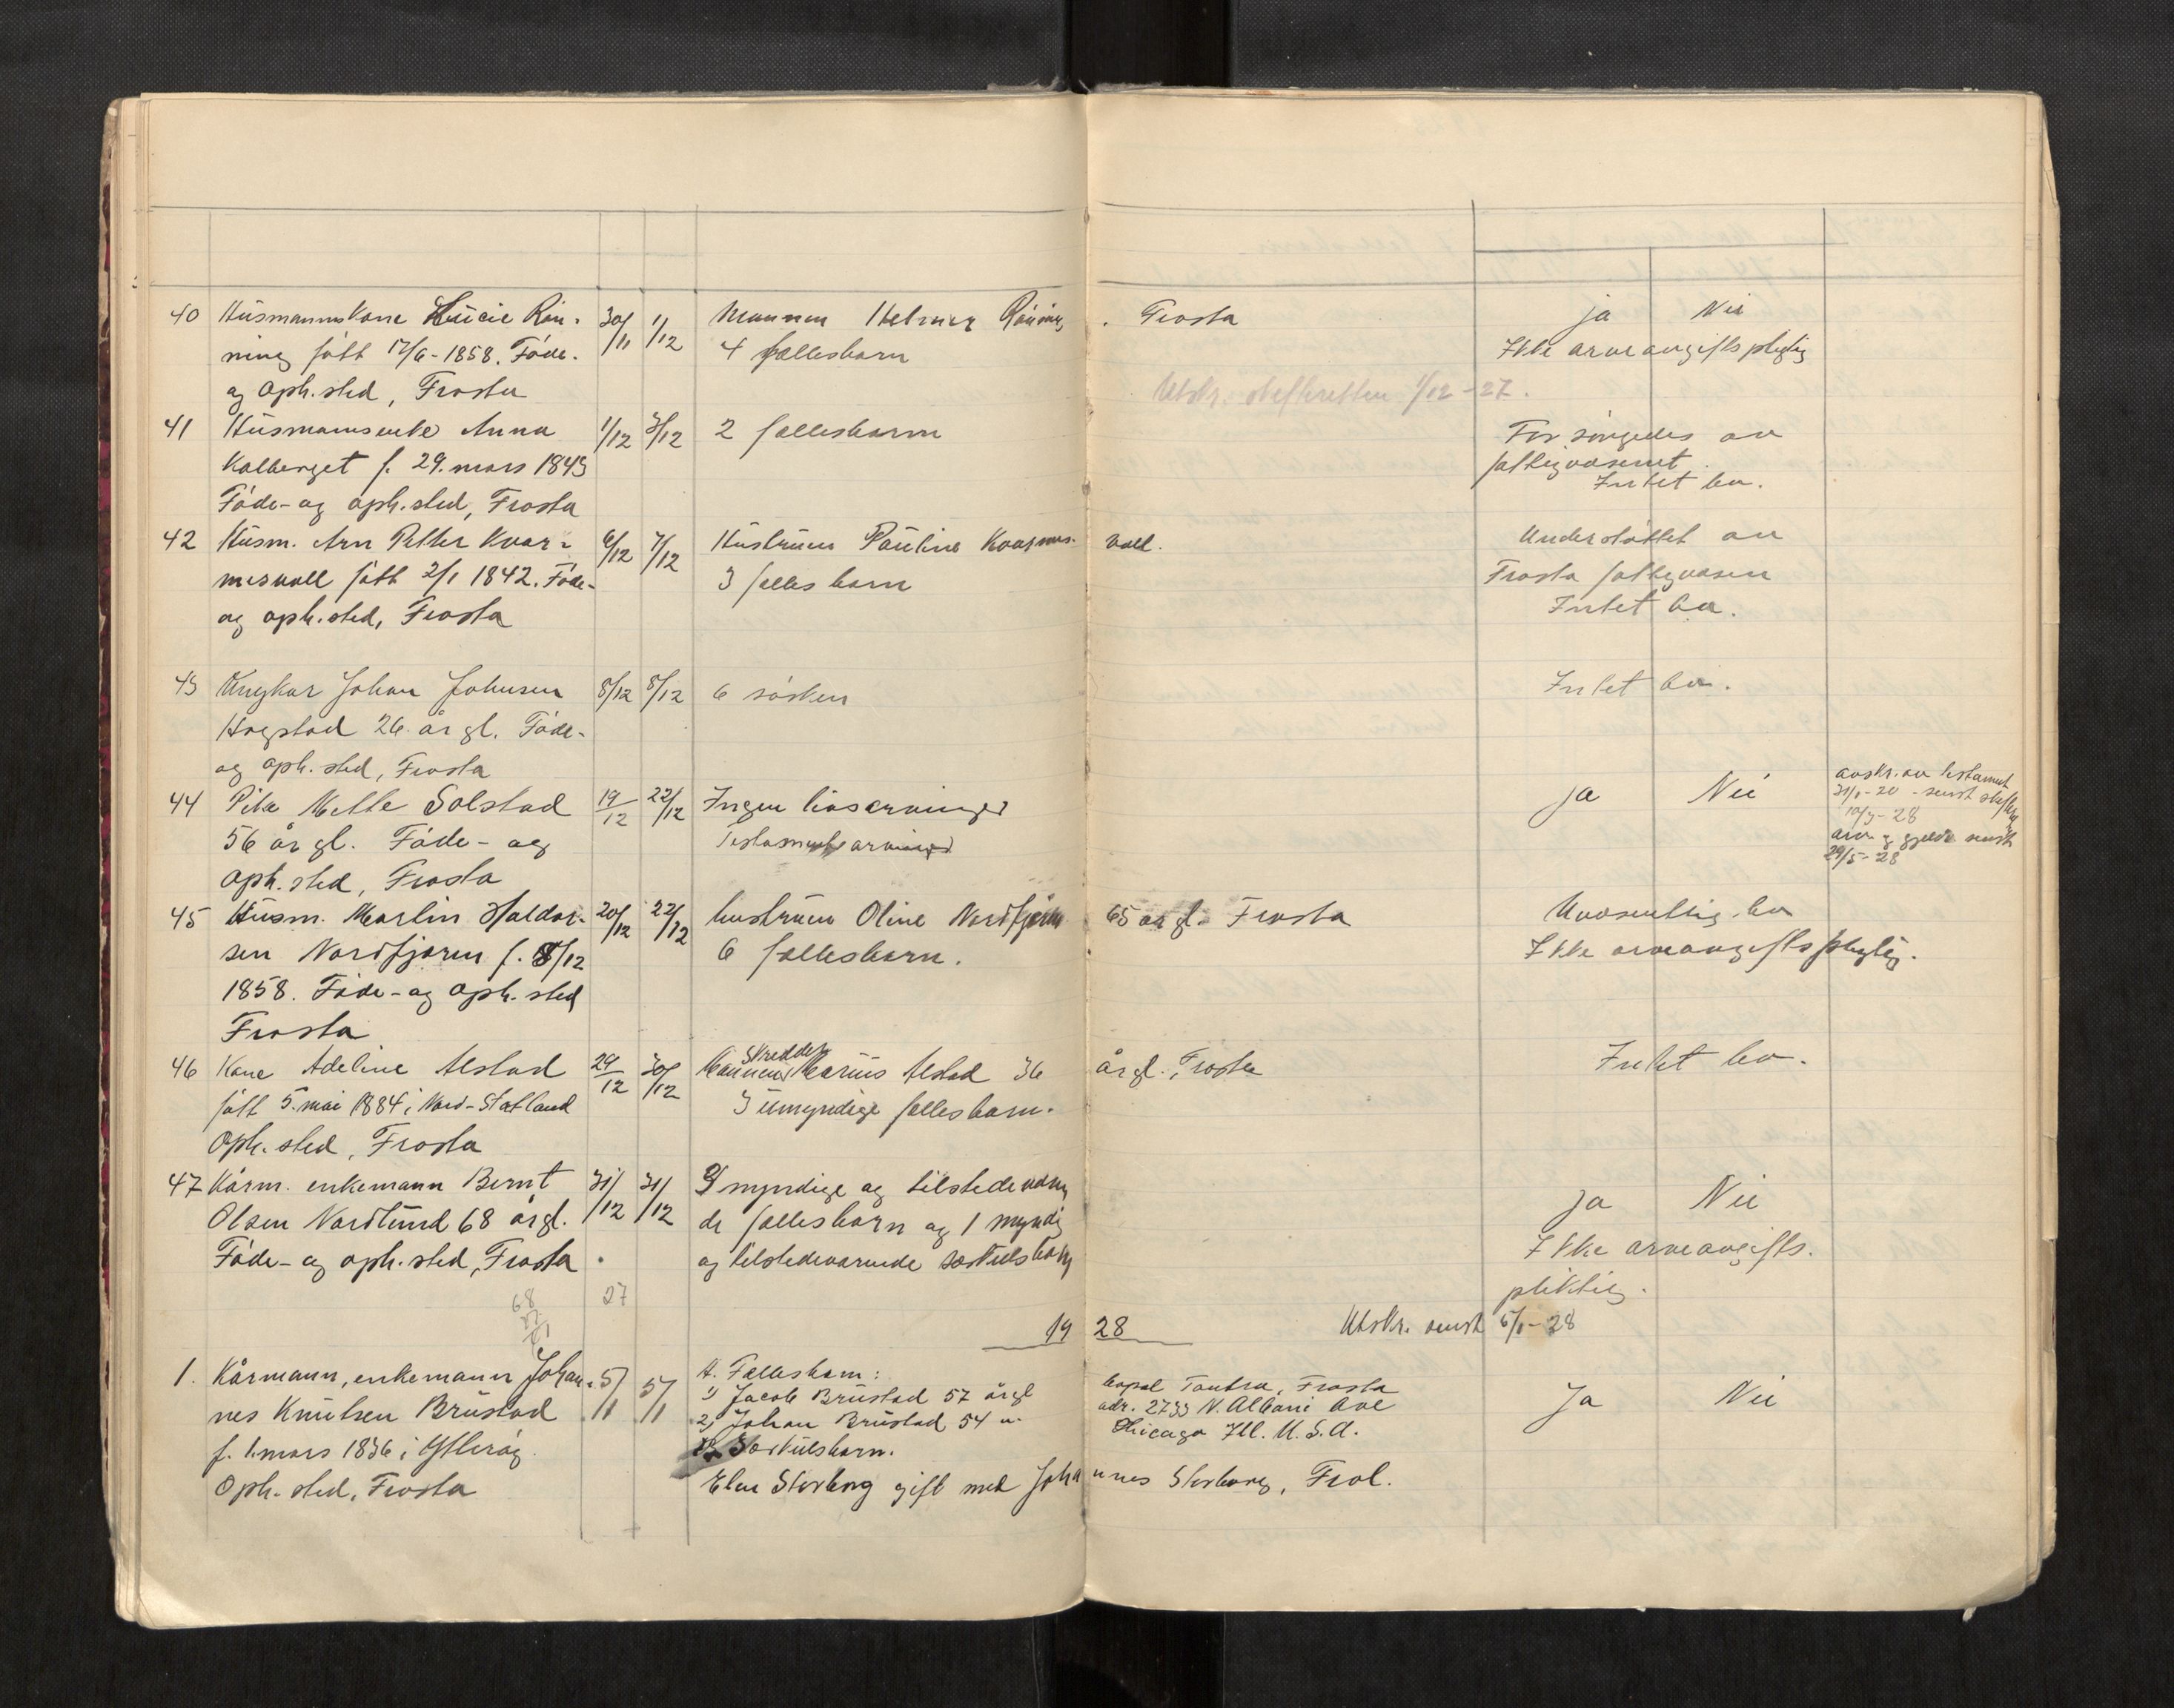 40 Husmannskone Lucie Rön- 30/11 1/12 Mannen Helmer Röning. Frosta ja Nei
ning født 17/6-1858. Føde- 4 fellesbarn Ikke arveavgiftspligtig
og oph.sted, Frosta Utskr. skifteretten 1/12-27.
41 Husmannsenke Anna 1/12 3/12 2 fellesbarn Forsörgedes av
Kalberget f. 29. mars 1843 fattigvæsenet.
Føde- og oph.sted, Frosta Intet bo.
42 Husm. Arn Petter Kvar- 6/12 7/12 Hustruen Pauline Kvarmes- voll. Understöttet av
mesvoll født 2/1 1842. Føde- 3 felles barn Frosta fattigvæsen
og oph.sted, Frosta Intet bo.
43 Ungkar Johan Johnsen 8/12 8/12 6 søsken Intet bo.
Hogstad 26 år gl. Føde-
og oph.sted, Frosta
44 Pike Mette Solstad 19/12 22/12 Ingen livsarvinger ja Nei
56 år gl. Føde- og Testamentsarvinger
oph.sted, Frosta
avskr. av testament
31/1-20 - sendt
10/3-28
arv og gjeld sendt
29/5-28
45 Husm. Martin Haldor- 20/12 22/12 hustruen Oline Nordfjæren 65 år gl. Frosta Uvæsentlig bo
sen Nordfjæren f. 8/12 6 fellesbarn. Ikke arveavgiftspligtig.
1858. Føde- og oph.sted
Frosta
46 Kone Adeline Alstad 29/12 30/12 Mannen Skredder Marius Alstad 36 år gl. Frosta Intet bo.
født 5. mai 1884 i Nord-Statland 3 umyndige fellesbarn.
Oph.sted, Frosta
47 Kårm. enkemann Bernt 31/12 31/12 9 myndige og tilstedeværen ja Nei
Olsen Nordlund 68 år gl. de fellesbarn og 1 myndig
Føde- og oph.sted, Frosta. og tilstedeværende særkulsbarn Ikke arveavgifts-
pliktig.
68 27
19 28 Utskr. sendt 5/1-28
1. Kårmann, enkemann Johan- 5/1 5/1 A. Fellesbarn:
1) Jacob Brustad 57 år gl bopel Tautra, Frosta Ja Nei
nes Knutsen Brustad 2) Johan Brustad 54 " adr. 2733 N. Albani Ave
Chicago Ill. U.S.A.
f. 1. mars 1836 i Ytterøy. Særkulsbarn.
Oph.sted, Frosta Elen Storborg gift med Johannes Storborg, Frol.